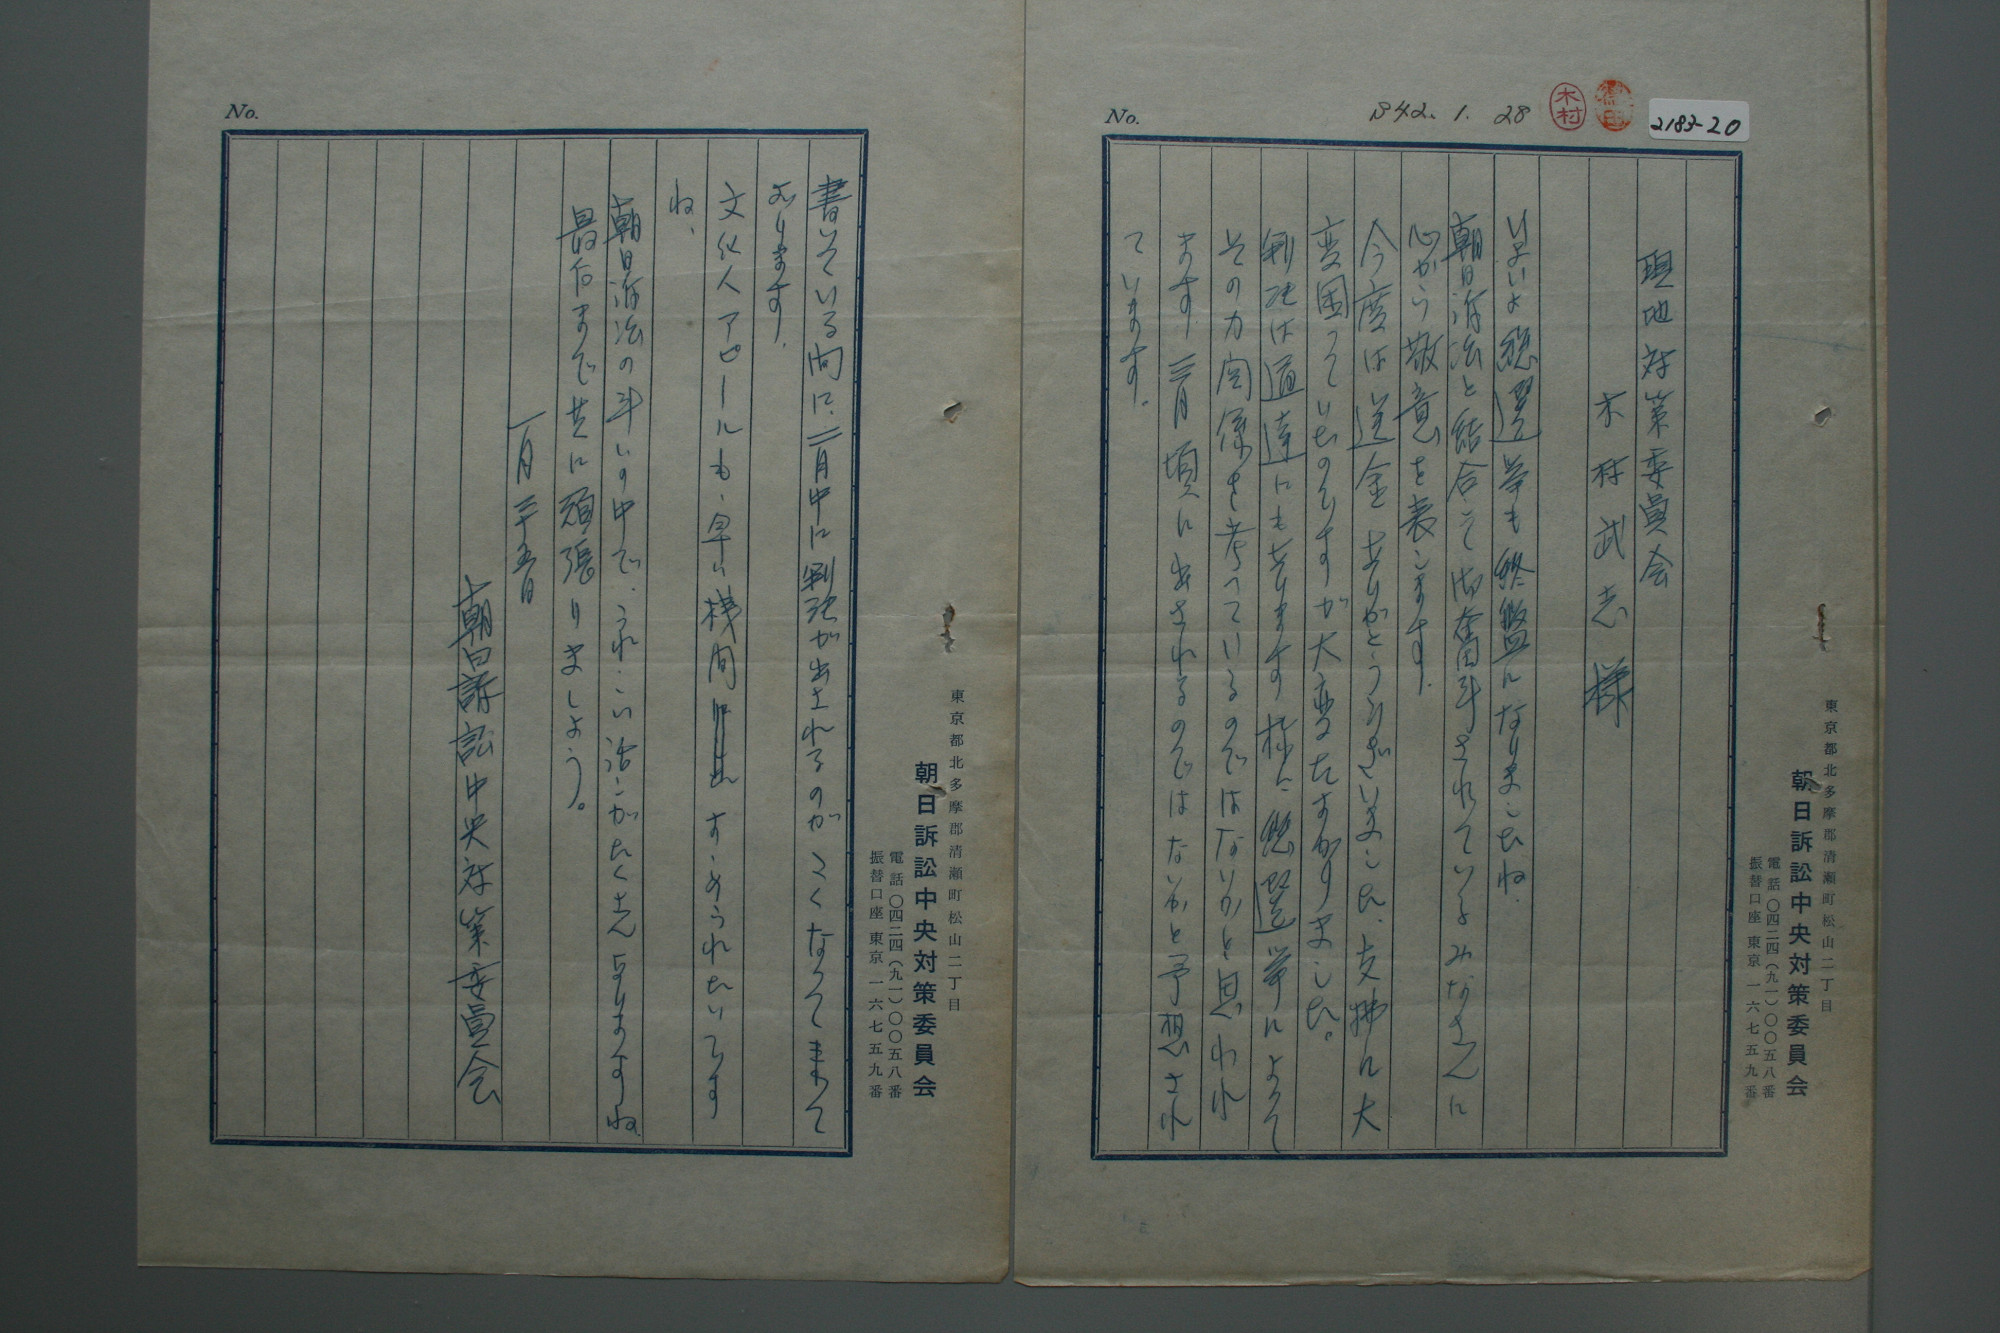 2183-20
S42. 1. 28
木村
No.
現地対策委員会
木村武志様
いよいよ総選挙も終盤になりましたね.
朝日訴訟と結合して御奮斗されているみなさんに
心から敬意を表します.
今度は送金ありがとうございました、支拂に大
変困っていたのですが大変たすかりました。
判決は通達にもあります様に総選挙によって
その力関係を考へているのではないかと思われ
ます. 三月頃に出されるのではないかと予想され
ています。
東京都北多摩郡清瀬町松山二丁目
朝日訴訟中央対策委員会
電話〇四二四(九一)〇〇五八番
振替口座東京一六七五九番
No.
書いている間に、二月中に判決が出されるのがこくなってまいって
おります.
文化人アピールも、早い機関にすゝめられたいです
ね、
朝日訴訟の斗いの中で、うれしい話しがたくさんありますね
最后まで共に頑張りましょう。
一月二十五日
朝日訴訟中央対策委員会
東京都北多摩郡清瀬町松山二丁目
朝日訴訟中央対策委員会
電話〇四二四(九一)〇〇五八番
振替口座東京一六七五九番